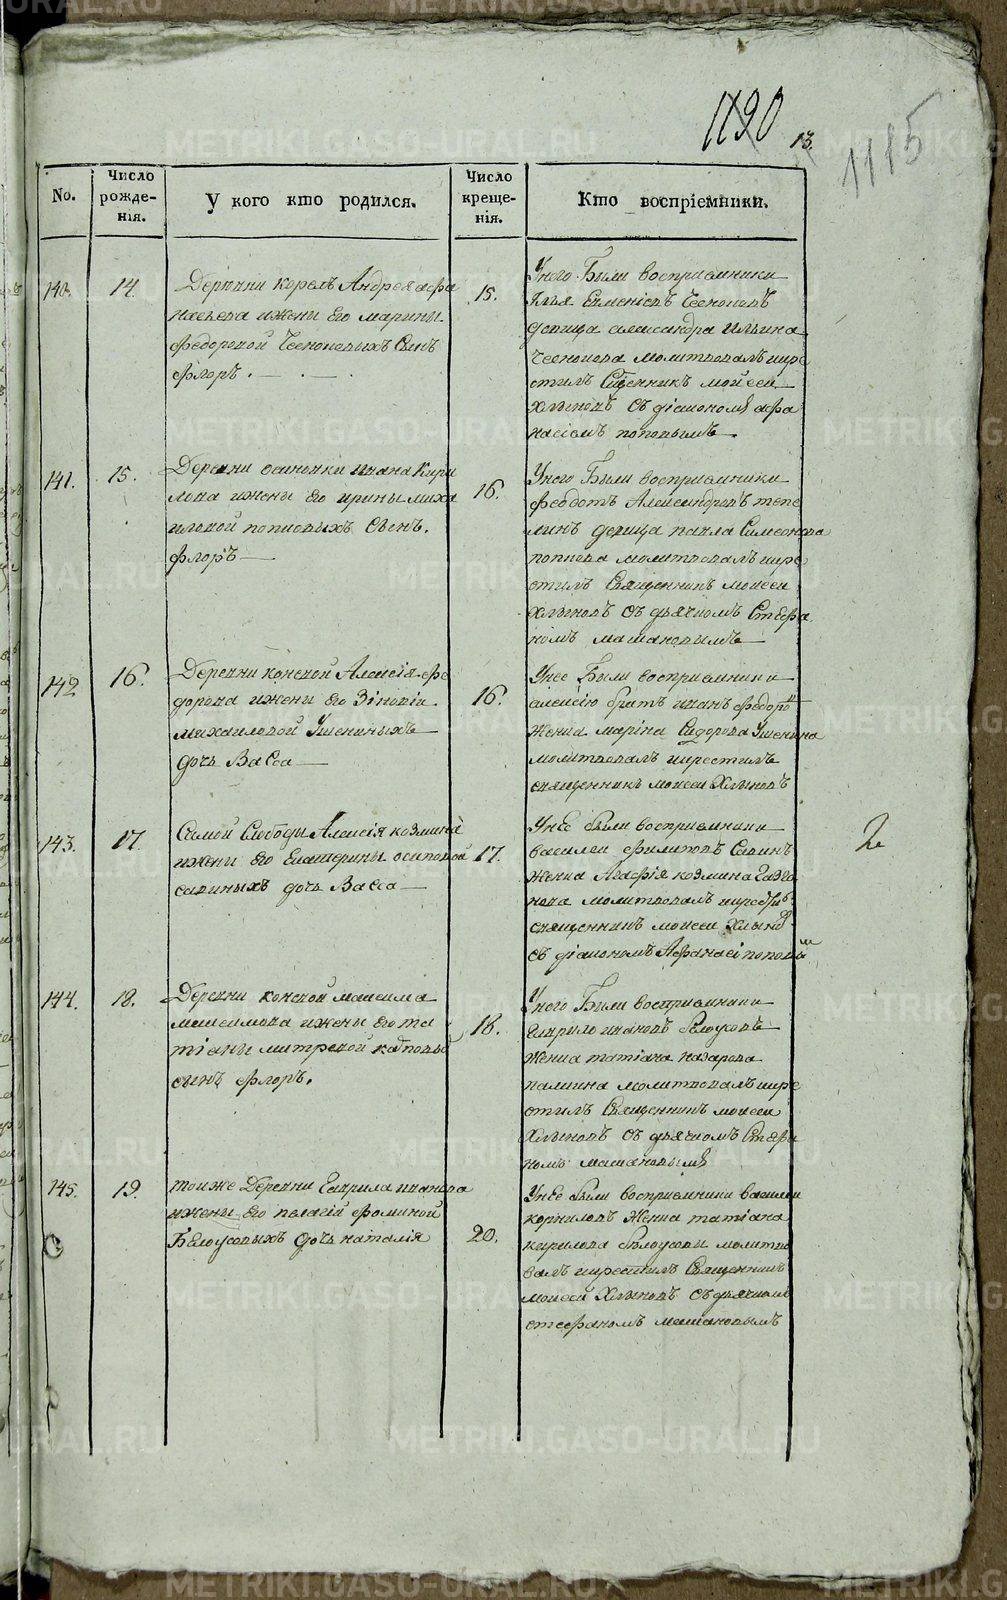 1190
13.
1115
No.
Число рожденія.
У кого кто родился.
Число крещенія.
Кто воспріемники.
140.
14.
Деревни корелъ Андрея афа
насьева ижены Его марины
федоровой Чесноковыхъ Сынъ
флоръ.
15.
Унего Были восприемники
Илья Чесноковъ
девица александра Ильина
Чеснокова молитвовалъ икре
стилъ Сщенникъ моисеи
Хлыновъ Съ діакономъ афа
насіемъ поповымъ.
141.
15.
Деревни осиновки ивана Кири
лова ижены Его ирины миха
иловой поповыхъ Сынъ.
флоръ
16.
Унего Были восприемники
федотъ Александровъ
девица павла Симеонова
попова молитвовалъ икре
стилъ Священникъ моисеи
Хлыновъ Съ дьячкомъ Стефа
номъ машановымъ
142
16.
Деревни конской Алексія фе
дорова ижены Его Зіновіи
михаиловой Ушениныхъ
дочь Васса
16.
Унее Были восприемники
алексію братъ иванъ федоро
Женка марина Сидорова Ушенина
молитвовалъ икрестилъ
священникъ моисеи Хлыновъ
143.
17.
Самой Слободы Алексія козмина
ижены Его Екатерины осиповой
савиныхъ дочь Васса
17.
УнЕе были восприемники
василеи филиповъ Савинъ
Женка Агафія козмина
молитвовалъ икрестилъ
священникъ моисеи Хлынов
съ діакономъ Афанасі поповы
2
144.
18.
Деревни конской максима
максимова ижены Его та
тіаны митревой
сынъ флоръ.
18.
Унего Были восприемники
Гаврило ивановъ белоусовъ
женка татіана назарова
молитвовалъ икре
стилъ Священникъ моисеи
Хлыновъ Съ дьячкомъ Стефа
номъ машановымъ
145.
19.
тоиже Деревни Гаврила иванова
ижены Его пелагіи фоминой
Белоусовыхъ дочь наталія
20.
УнЕе были восприемники василеи
корниловъ Женка татіана
кирилова белоусовы молитво
валъ икрестилъ Священникъ
моисеи Хлыновъ Съ дьячком
стефаномъ машановымъ
METRIKI.GASO-URAL.RU